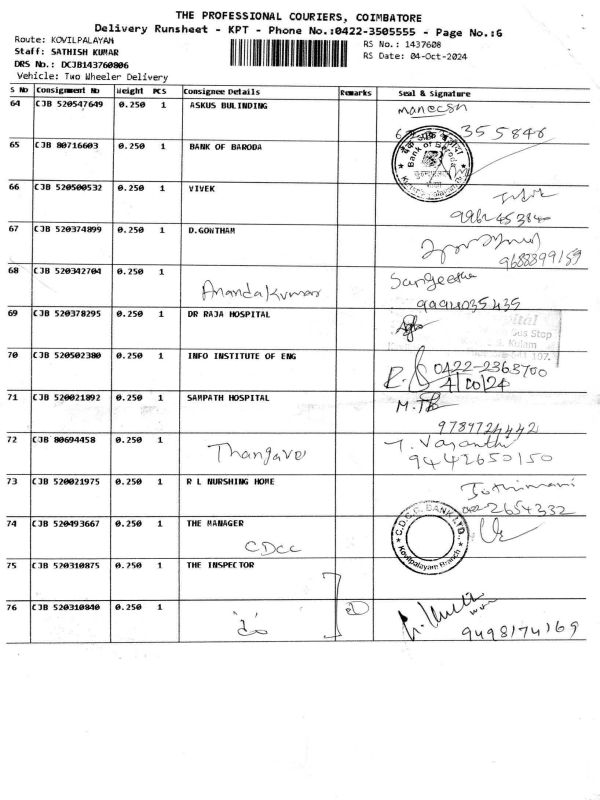 THE PROFESSIONAL COURIERS, COIMBATORE
Delivery Runsheet - KPT - Phone No.:0422-3505555 - Page No.:6
Route: KOVILPALAYAM
RS No.: 1437608
Staff: SATHISH KUMAR
RS Date: 04-Oct-2024
DRS No.: DCJB143760806
Vehicle: Two Wheeler Delivery
S No Consignment No Weight PCS Consignee Details Remarks Seal & Signature
64 CJB 520547649 0.250 1 ASKUS BULINDING
355846
65 CJB 80716603 0.250 1 BANK OF BARODA
Bank of Baroda
66 CJB 520500532 0.250 1 VIVEK
67 CJB 520374899 0.250 1 D.GONTHAM
9688399159
68 CJB 520342704 0.250 1 Sangeetha
Anandakumar 9994035435
69 CJB 520378295 0.250 1 DR RAJA HOSPITAL
70 CJB 520502380 0.250 1 INFO INSTITUTE OF ENG
0422-2363700
4/00/24
71 CJB 520021892 0.250 1 SAMPATH HOSPITAL
9789724442
72 CJB 80694458 0.250 1 T. Vasanthi
Thangavel 9442650150
73 CJB 520021975 0.250 1 R L NURSHING HOME Jothimani
0422-2654332
74 CJB 520493667 0.250 1 THE MANAGER
CDCC
C.D.C.C. BANK LTD.,
Kovilpalayam Branch
75 CJB 520310875 0.250 1 THE INSPECTOR
76 CJB 520310840 0.250 1
9498174169